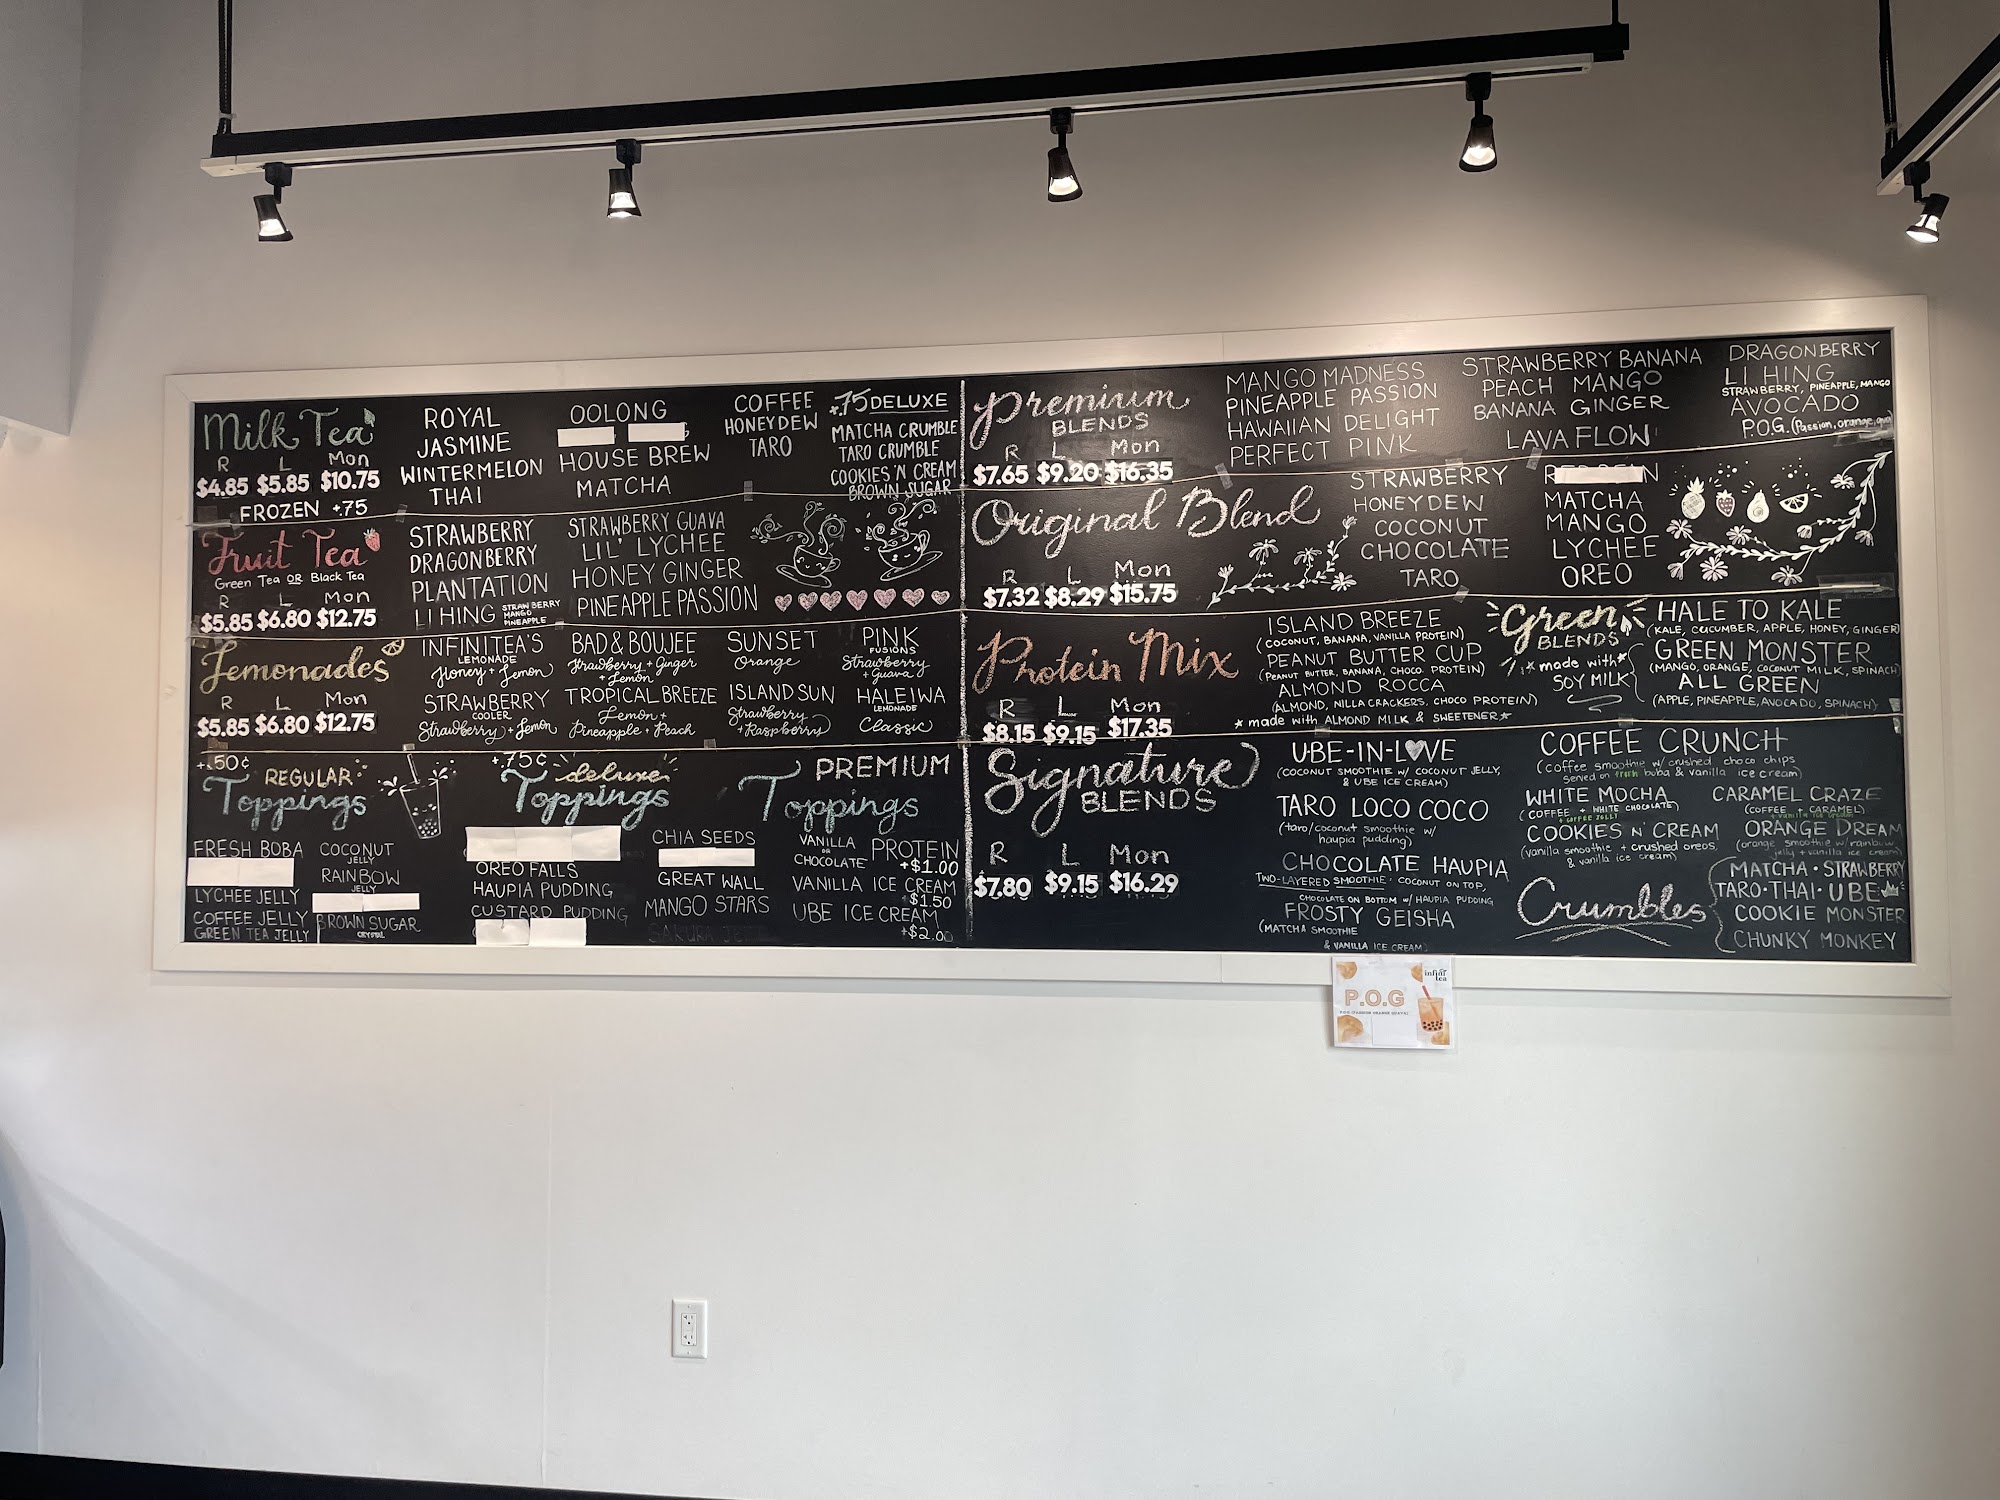 Milk Tea
R L Mon
$4.85 $5.85 $10.75
FROZEN +.75
ROYAL
JASMINE
WINTERMELON
THAI
OOLONG
HOUSE BREW
MATCHA
COFFEE
HONEYDEW
TARO
+.75 DELUXE
MATCHA CRUMBLE
TARO CRUMBLE
COOKIES 'N CREAM
BROWN SUGAR
Fruit Tea
Green Tea OR Black Tea
R L Mon
$5.85 $6.80 $12.75
STRAWBERRY
DRAGONBERRY
PLANTATION
LI HING STRAWBERRY
MANGO
PINEAPPLE
STRAWBERRY GUAVA
LIL' LYCHEE
HONEY GINGER
PINEAPPLE PASSION
Lemonades
R L Mon
$5.85 $6.80 $12.75
INFINITEA'S
LEMONADE
Honey + Lemon
STRAWBERRY
COOLER
Strawberry + Lemon
BAD & BOUJEE
Strawberry + Ginger
+ Lemon
TROPICAL BREEZE
Lemon +
Pineapple + Peach
SUNSET
Orange
ISLAND SUN
Strawberry
+ Raspberry
PINK
FUSIONS
Strawberry
+ Guava
HALEIWA
LEMONADE
Classic
+.50¢
REGULAR
Toppings
FRESH BOBA
LYCHEE JELLY
COFFEE JELLY
GREEN TEA JELLY
COCONUT
JELLY
RAINBOW
JELLY
BROWN SUGAR
CRYSTAL
+.75¢
deluxe
Toppings
OREO FALLS
HAUPIA PUDDING
CUSTARD PUDDING
CHIA SEEDS
GREAT WALL
MANGO STARS
PREMIUM
Toppings
VANILLA
OR
CHOCOLATE PROTEIN
+$1.00
VANILLA ICE CREAM
+$1.50
UBE ICE CREAM
+$2.00
Premium
BLENDS
R L Mon
$7.65 $9.20 $16.35
MANGO MADNESS
PINEAPPLE PASSION
HAWAIIAN DELIGHT
PERFECT PINK
STRAWBERRY BANANA
PEACH MANGO
BANANA GINGER
LAVA FLOW
DRAGONBERRY
LI HING
STRAWBERRY, PINEAPPLE, MANGO
AVOCADO
P.O.G. (Passion, orange,
Original Blend
R L Mon
$7.32 $8.29 $15.75
STRAWBERRY
HONEYDEW
COCONUT
CHOCOLATE
TARO
MATCHA
MANGO
LYCHEE
OREO
Protein Mix
R L Mon
$8.15 $9.15 $17.35
ISLAND BREEZE
(COCONUT, BANANA, VANILLA PROTEIN)
PEANUT BUTTER CUP
(PEANUT BUTTER, BANANA, CHOCO PROTEIN)
ALMOND ROCCA
(ALMOND, NILLA CRACKERS, CHOCO PROTEIN)
* made with ALMOND MILK & SWEETENER *
Green
BLENDS
* made with *
SOY MILK
HALE TO KALE
(KALE, CUCUMBER, APPLE, HONEY, GINGER)
GREEN MONSTER
(MANGO, ORANGE, COCONUT MILK, SPINACH)
ALL GREEN
(APPLE, PINEAPPLE, AVOCADO, SPINACH)
Signature
BLENDS
R L Mon
$7.80 $9.15 $16.29
UBE-IN-LOVE
(COCONUT SMOOTHIE W/ COCONUT JELLY,
& UBE ICE CREAM)
TARO LOCO COCO
(taro/coconut smoothie w/
haupia pudding)
CHOCOLATE HAUPIA
TWO-LAYERED SMOOTHIE· COCONUT ON TOP,
CHOCOLATE ON BOTTOM W/ HAUPIA PUDDING
FROSTY GEISHA
(MATCHA SMOOTHIE
& VANILLA ICE CREAM)
COFFEE CRUNCH
(coffee smoothie w/ crushed choco chips
served on fresh boba & vanilla ice cream)
WHITE MOCHA
(COFFEE + WHITE CHOCOLATE)
+ COFFEE JELLY
COOKIES N' CREAM
(vanilla smoothie + crushed oreos,
& vanilla ice cream)
CARAMEL CRAZE
(COFFEE + CARAMEL)
+ vanilla ice cream
ORANGE DREAM
(orange smoothie w/ rainbow
jelly + vanilla ice cream)
Crumbles
MATCHA · STRAWBERRY
TARO · THAI · UBE
COOKIE MONSTER
CHUNKY MONKEY
infini
tea
P.O.G